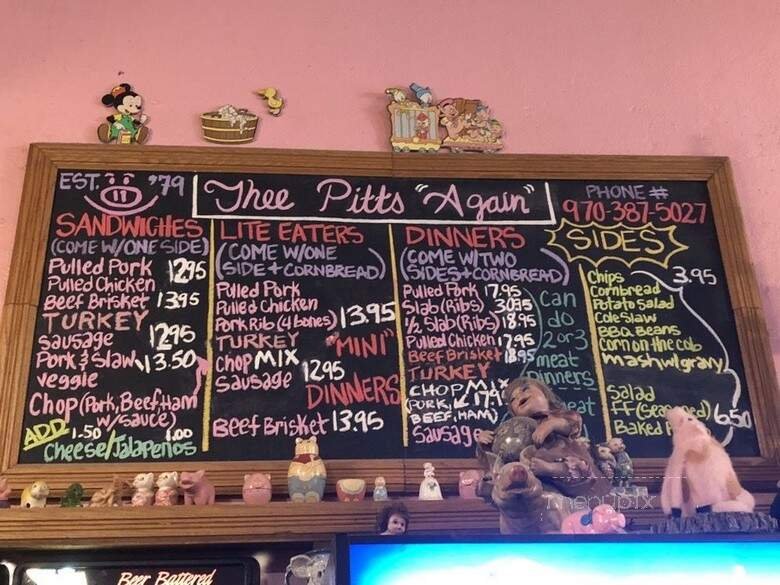 EST. '79
Thee Pitts "Again"
PHONE #
970-387-5027
SANDWICHES
(COME W/ONE SIDE)
Pulled Pork 1295
Pulled Chicken
Beef Brisket 13.95
TURKEY
Sausage 1295
Pork & Slaw 13.50
Veggie
Chop (Pork, Beef, Ham
w/Sauce)
ADD 1.50 1.00
Cheese/Jalapeños
LITE EATERS
(COME W/ONE
SIDE + CORNBREAD)
Pulled Pork
Pulled Chicken
Pork Rib (4 bones) 13.95
TURKEY "MINI"
Chop MIX
Sausage 1295
DINNERS
Beef Brisket 13.95
DINNERS
(COME W/TWO
SIDES + CORNBREAD)
Pulled Pork 17.95
Slab (Ribs) 30.95
1/2 Slab (Ribs) 18.95
Pulled Chicken 17.95
Beef Brisket 1895
TURKEY
CHOP MIX
(PORK, 1795
BEEF, HAM)
Sausage
Can
do
2 or 3
meat
Dinners
SIDES
Chips 3.95
Cornbread
Potato Salad
Cole Slaw
BBQ Beans
Corn on the cob
mash w/gravy
Salad
FF (Seasoned) 6.50
Baked
Beer Battered
menupix